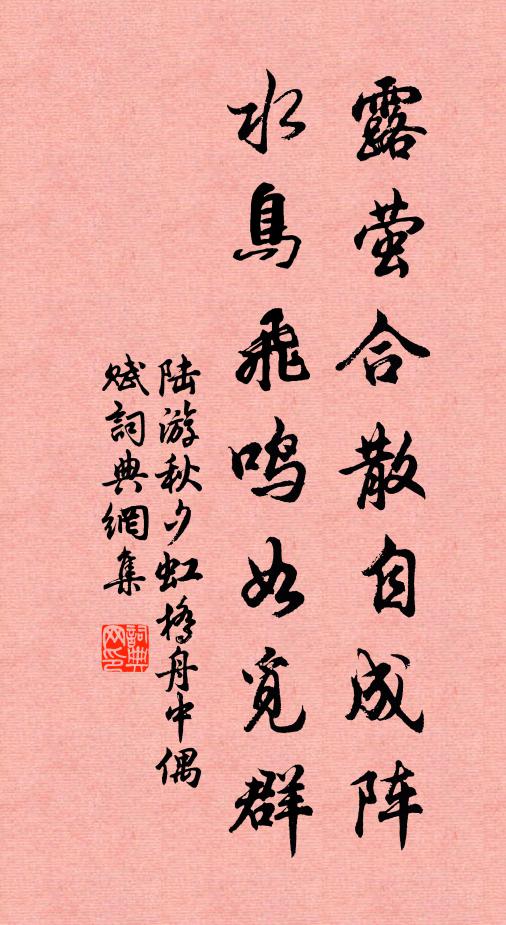 露萤合散自成阵
水鳥飛鸣如覓群
陆游秋夕虹橋舟中偶
赋詞典網集
詞典网印